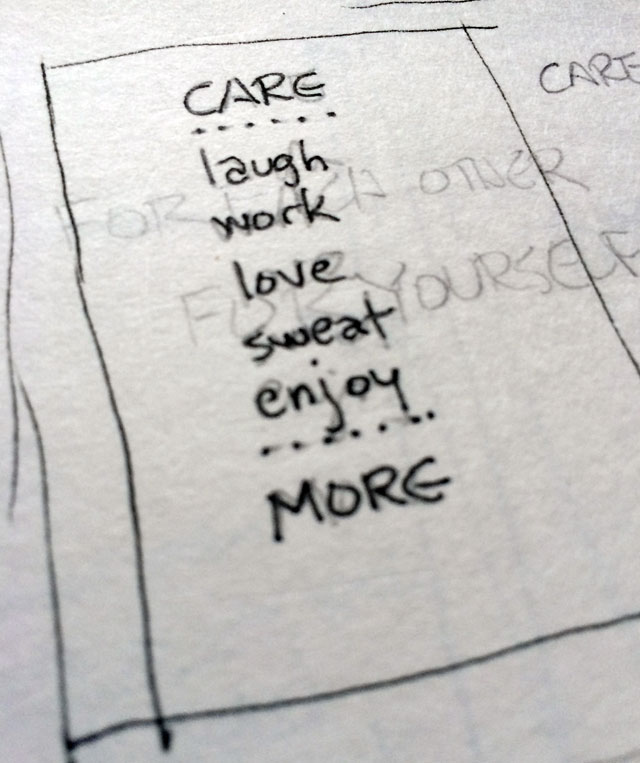 CARE
laugh
work
love
sweat
enjoy
MORE
CARE
FOR EACH OTHER
FOR YOURSELF